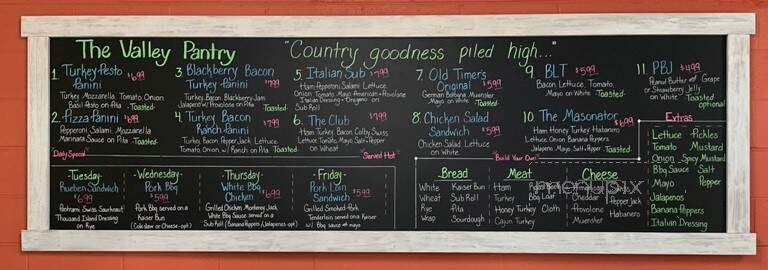 The Valley Pantry
"Country goodness piled high..."
1. Turkey-Pesto $6.99
Panini
Turkey Mozzarella Tomato Onion
Basil Pesto on Pita -Toasted-
2. Pizza Panini $6.99
Pepperoni Salami Mozzarella
Marinara Sauce on Pita -Toasted-
3. Blackberry Bacon
Turkey Panini $7.99
Turkey Bacon Blackberry Jam
Jalapeno w/ Provolone on Pita Toasted
4. Turkey Bacon
Ranch Panini $7.99
Turkey Bacon Pepper Jack Lettuce
Tomato Onion w/ Ranch on Pita Toasted
5. Italian Sub $7.99
Ham Pepperoni Salami Lettuce
Onion Tomato Mayo American + Provolone
Italian Dressing + Oregano on
Sub Roll
6. The Club $7.99
Ham Turkey Bacon Colby Swiss
Lettuce Tomato Mayo Salt + Pepper
on Wheat
7. Old Timers
Original $5.99
German Bologna Muenster
Mayo on White -Toasted-
8. Chicken Salad
Sandwich $5.99
Chicken Salad Lettuce
on White
9. BLT $5.99
Bacon Lettuce, Tomato,
Mayo on White -Toasted-
10 The Masonator $6.99
Ham Honey Turkey Habanero
Lettuce Onion Banana Peppers
Jalapeno Mayo Salt + Pepper -Toasted-
11. PBJ $4.99
Peanut Butter Grape
or Strawberry Jelly
on White Toasted
optional
"Daily Special"
"Served Hot"
·Tuesday·
Rueben Sandwich
$6.99
Pastrami Swiss Saurkraut
Thousand Island Dressing
on Rye
·Wednesday·
Pork BBQ
$5.99
Pork BBQ served on a
Kaiser Bun
(Coleslaw or Cheese-opt)
·Thursday·
White BBQ
Chicken $6.99
Grilled Chicken, Monterey Jack
White BBQ Sauce served on a
Sub Roll (Banana Peppers/Jalapenos-opt)
·Friday·
Pork Loin
Sandwich $5.99
Grilled Smoked-Pork
Tenderloin served on a Kaiser
w/ BBQ sauce or mayo
"Build Your Own"
Bread
White Kaiser Bun
Wheat Sub Roll
Rye Pita
Wrap Sourdough
Meat
Ham
Turkey BBQ Loaf
Honey Turkey Cloth
Cajun Turkey
Cheese
Cheddar Pepper Jack
Provolone Habanero
Muenster
Extras
Lettuce Pickles
Tomato Mustard
Onion Spicy Mustard
BBQ Sauce Salt
Mayo Pepper
Jalapenos
Banana Peppers
Italian Dressing
menupix